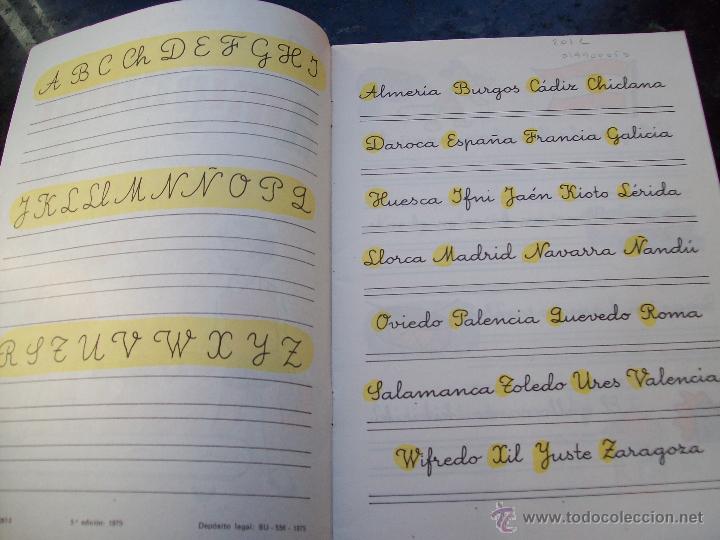 A B C Ch D E F G H I
J K L Ll M N Ñ O P Q
R S T U V W X Y Z
5.ª edición: 1975
Depósito legal: BU - 556 - 1975
Almería Burgos Cádiz Chiclana
Daroca España Francia Galicia
Huesca Ifni Jaén Kioto Lérida
Llorca Madrid Navarra Ñandú
Oviedo Palencia Quevedo Roma
Salamanca Toledo Ures Valencia
Wifredo Xil Yuste Zaragoza
www.todocoleccion.net